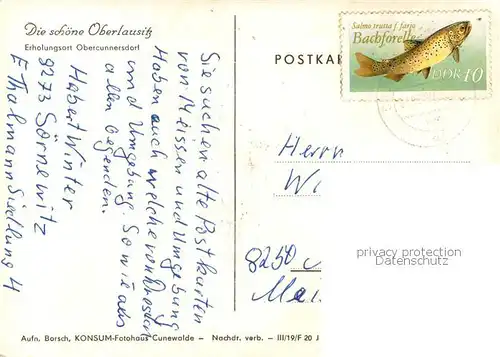 Die schöne Oberlausitz
Erholungsort Obercunnersdorf
Sie suchen alte Postkarten
von Meissen und Umgebung
Haben auch welche von Dresden
und Umgebung. Sowie aus
allen Gegenden.
Habert Winter
8273 Sörnewitz
E Thälmann Siedlung 4
POSTKA
Salmo trutta f. fario
Bachforelle
DDR 10
Herrn
Wi
8250
Mei
privacy protection
Datenschutz
Aufn. Borsch, KONSUM-Fotohaus Cunewalde – Nachdr. verb. – III/19/F 20 J